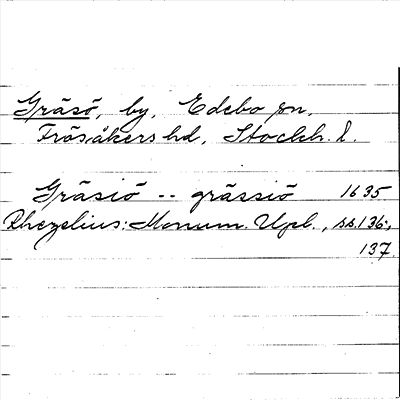 Gräsö, by, Edebo sn,
Frösåkers hd, Stockh. l.
Gräsiö -- grässiö 1635
Rhezelius: Monum. Upl., ss. 136,
137.